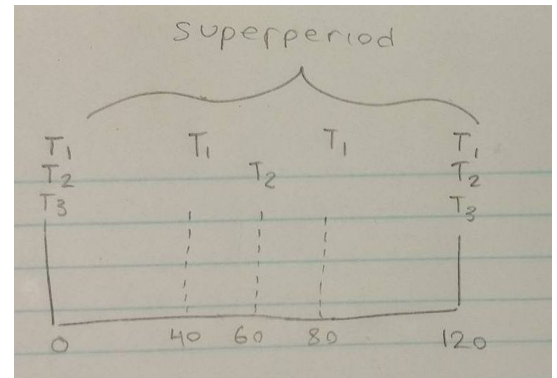 superperiod
T1 T1 T1 T1
T2 T2 T2
T3 T3
0 40 60 80 120